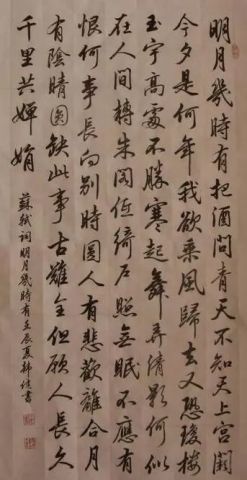 明月幾時有把酒問青天不知天上宮闕
今夕是何年我欲乘風歸去又恐瓊樓
玉宇高處不勝寒起舞弄清影何似
在人間轉朱閣低綺户照無眠不應有
恨何事長向別時圓人有悲歡離合月
有陰晴圓缺此事古難全但願人長久
千里共嬋娟
蘇軾詞明月幾時有壬辰夏韓書